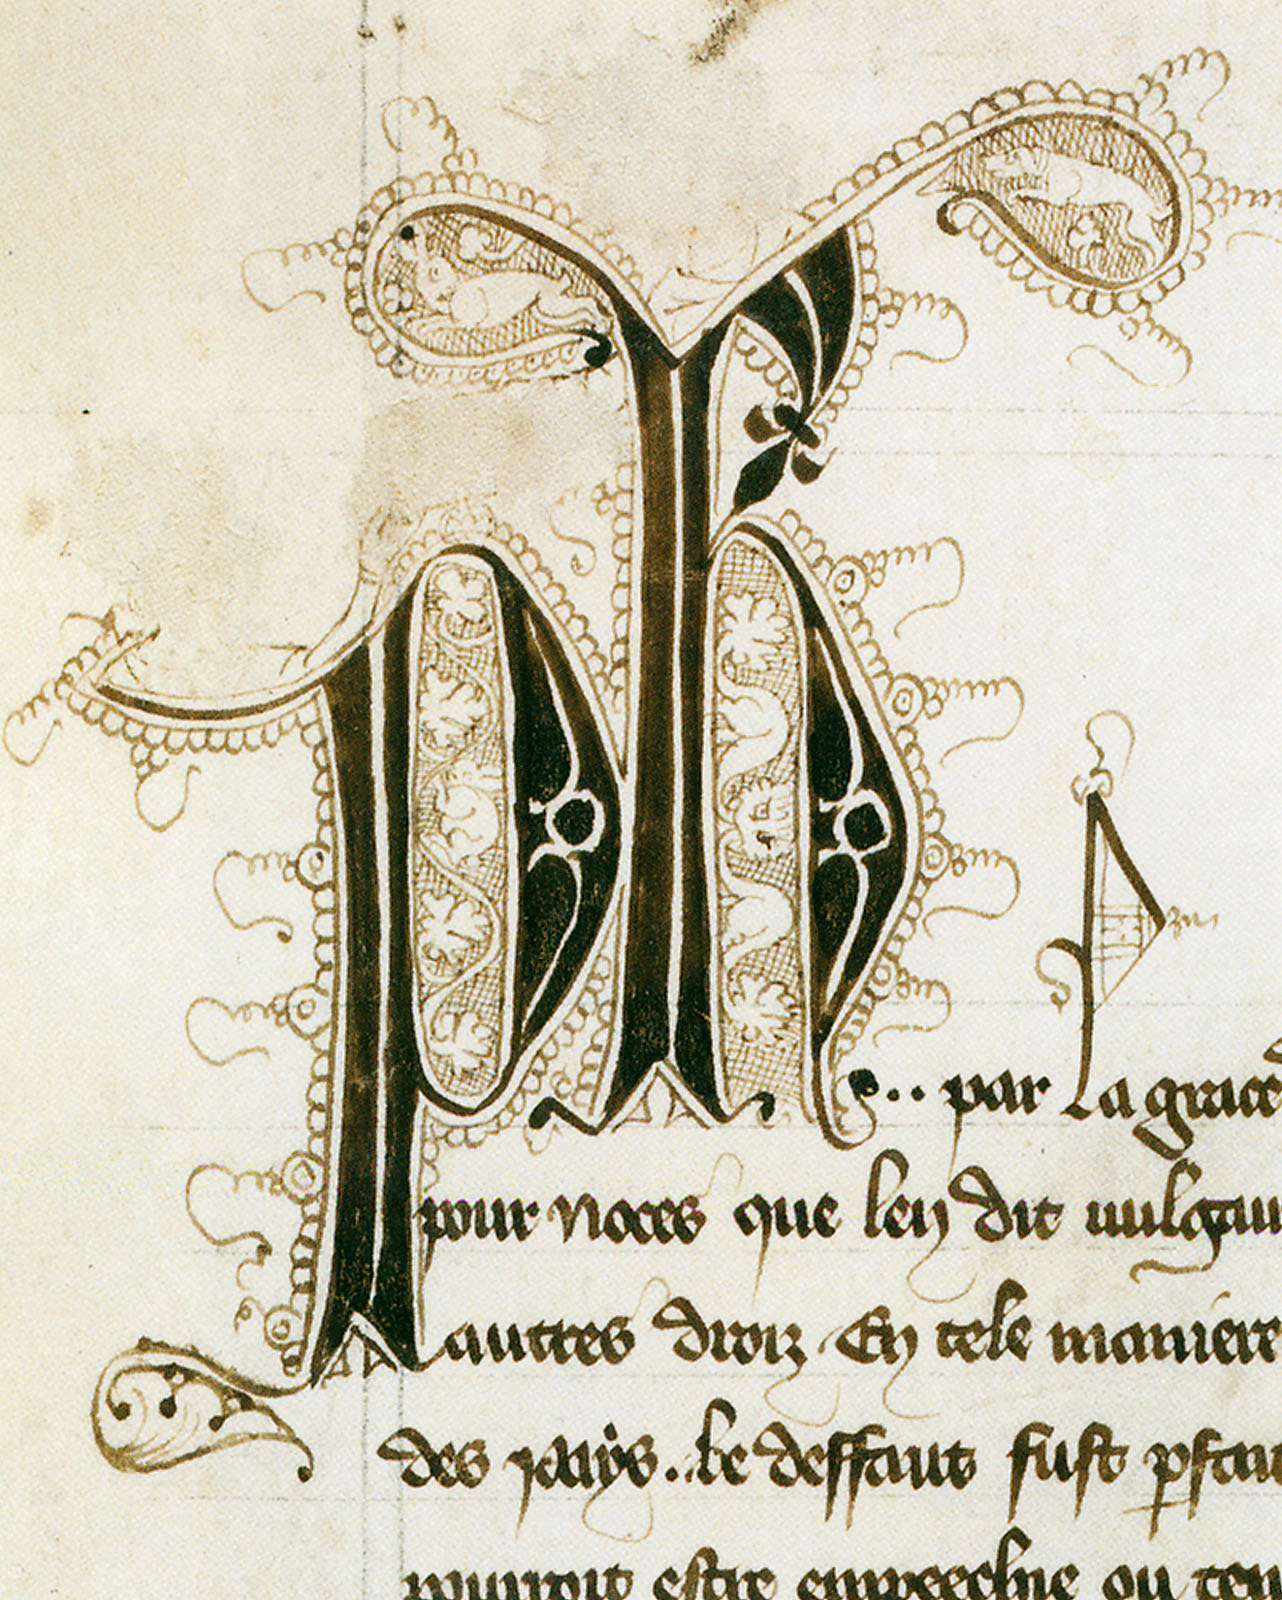 Ph.. par la grace
pour noces que len dit vulgau
autres droiz. En tele maniere
des pays..le deffaut fust pſcau
pourroit estre empeechie ou ten